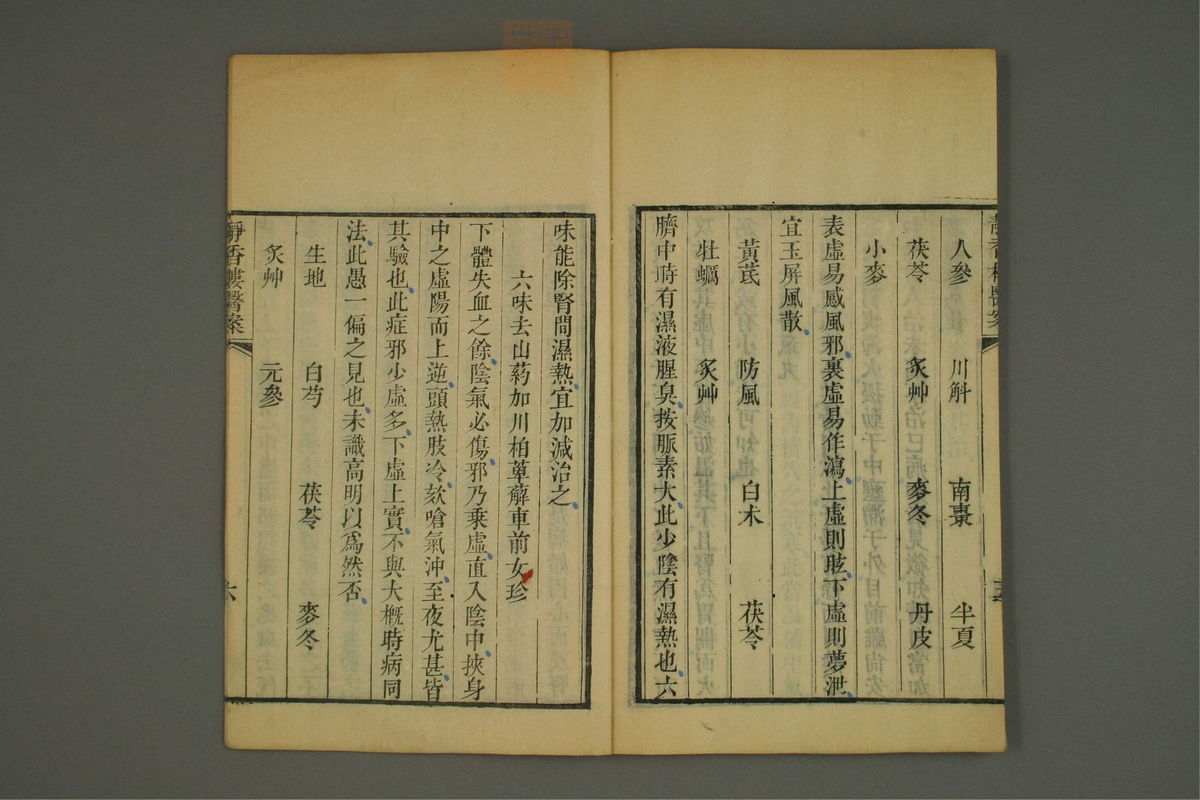 人參　川斛　南棗　半夏
茯苓　炙艸　麥冬　丹皮
小麥
表虛易感風邪裏虛易作瀉上虛則眩下虛則夢泄
宜玉屏風散
黃芪　防風　白朮　茯苓
牡蠣　炙艸
臍中時有濕液腥臭按脈素大此少陰有濕熱也六
味能除腎間濕熱宜加減治之
六味去山药加川柏萆薢車前女珍
下體失血之餘陰氣必傷邪乃乘虛直入陰中挾身
中之虛陽而上逆頭熱肢冷欬嗆氣沖至夜尤甚皆
其驗也此症邪少虛多下虛上實不與大概時病同
法此愚一偏之見也未識高明以爲然否
生地　白芍　茯苓　麥冬
炙艸　元參
靜香樓醫案　六